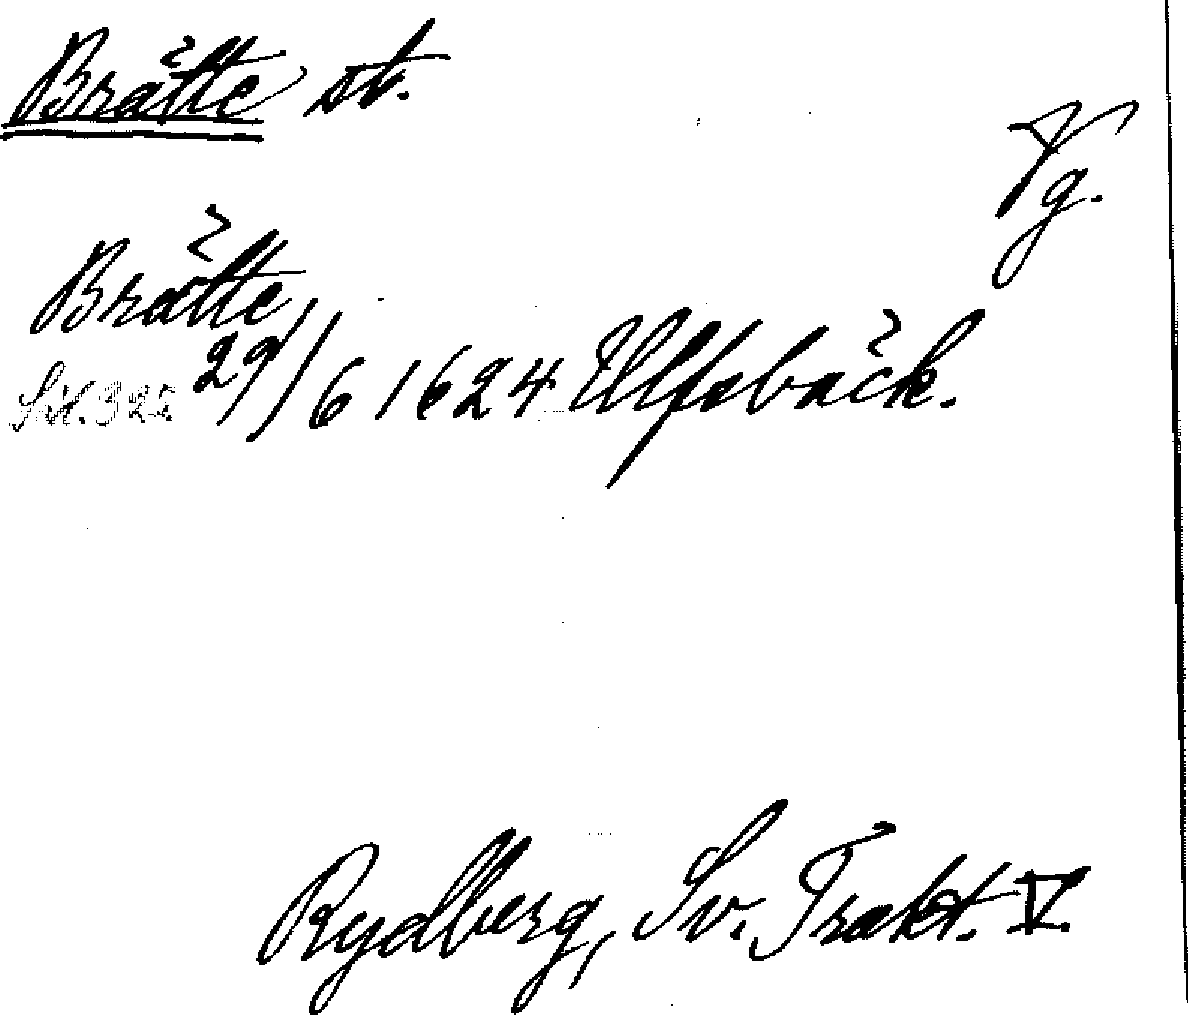 Brätte st.
Vg.
Brätte
S. 322 29/6 1624 Ulfsbäck.
Rydberg, Sv. Trakt. V.